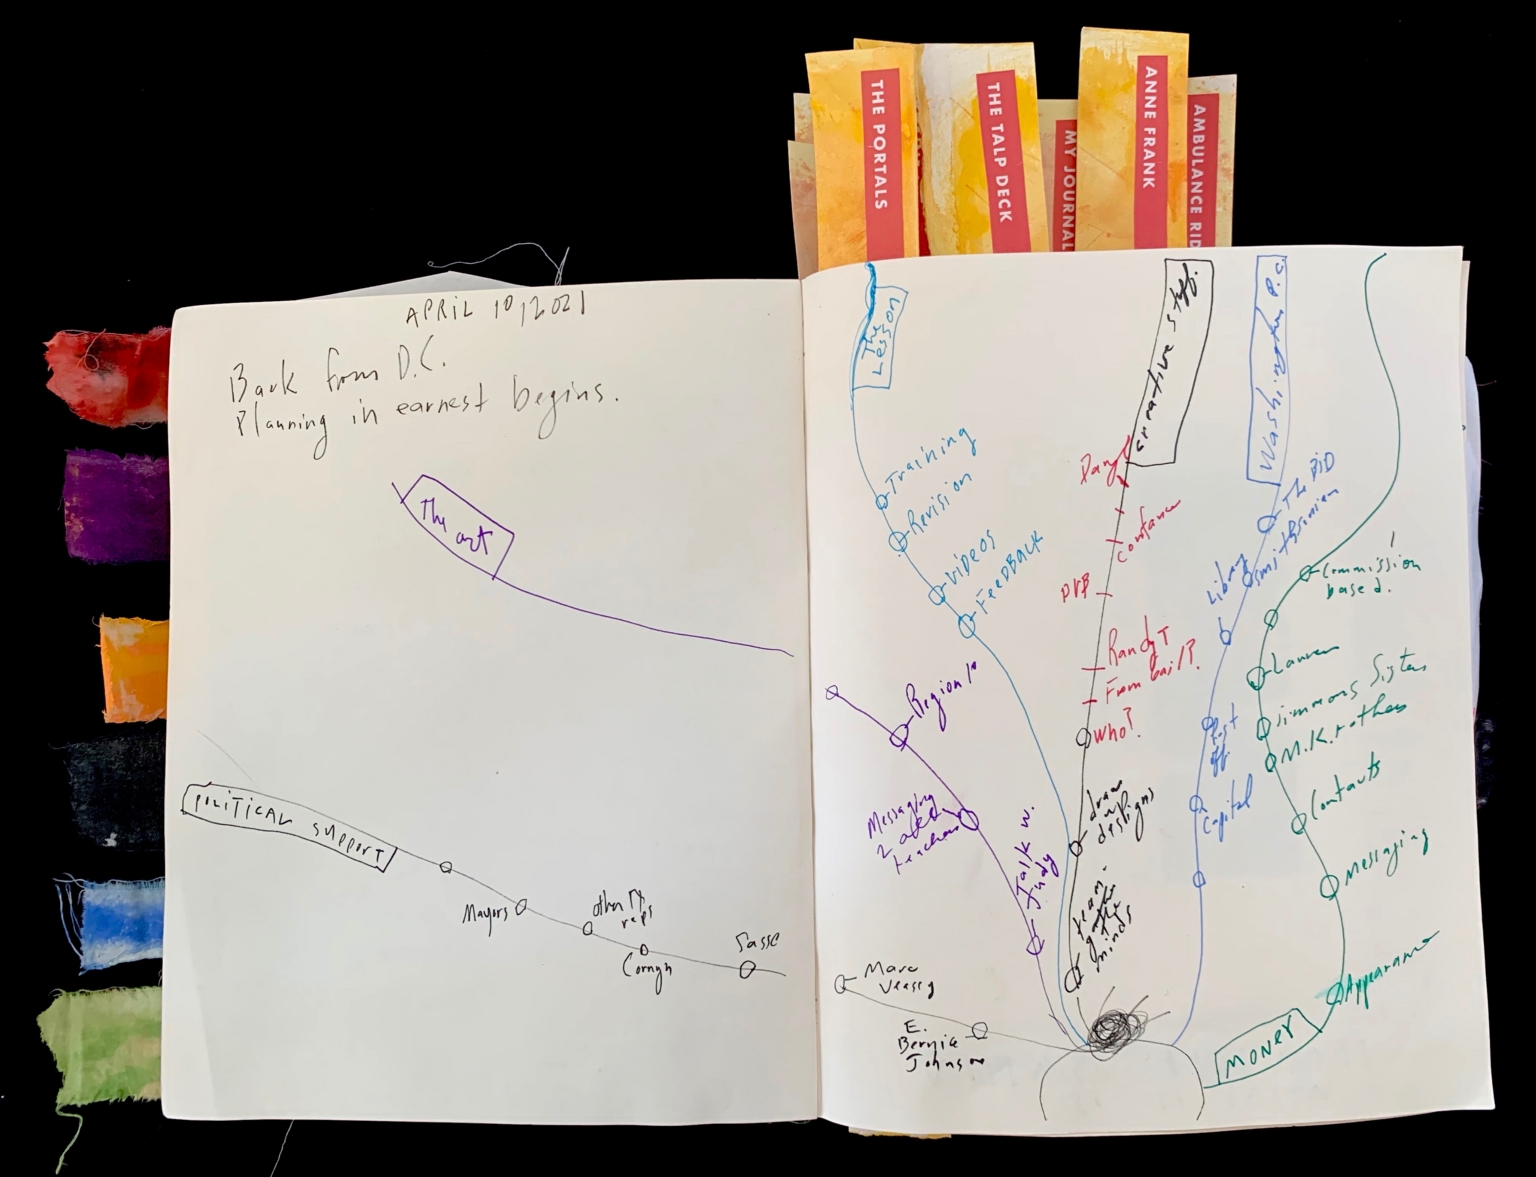 THE PORTALS
THE TALP DECK
MY JOURNAL
ANNE FRANK
AMBULANCE RID
APRIL 10, 2021
Back from D.C.
Planning in earnest begins.
The art
POLITICAL SUPPORT
Mayors
other TX
reps
Cornyn
Sasse
The
Lesson
Training
Revision
VIDEOS
FeeDBACK
Region 10
Messaging
2 art
teachers
Talk w.
Judy
Marc
Veasey
E.
Bernice
Johnson
creative staff
Constance
PVB
Randy T
From bail?
Who?
draw
up
designs
team-
gather
the
minds
Washington D.C.
The BID
Smithsonian
Library
Post
off.
Capital
Commission
based!
Lauren
Simmons Sisters
M.K. rothers
Contacts
Messaging
Appearance
MONEY